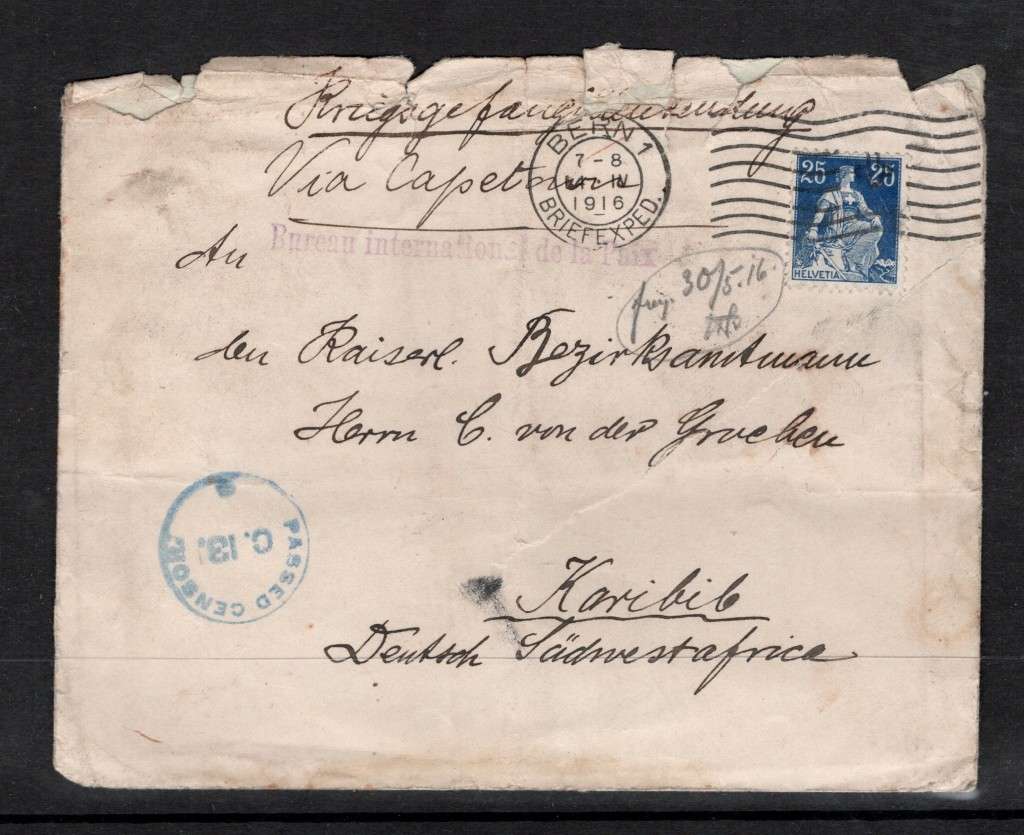 Kriegsgefangenensendung
Via Capetown
BERN 1
7-8
IV
1916
BRIEFEXPED.
25 25
HELVETIA
Bureau international de la Paix
An
30/5.16.
den Kaiserl. Bezirksamtmann
Herrn C. von der Groeben
PASSED CENSOR
C.13.
Karibib
Deutsch Südwestafrica